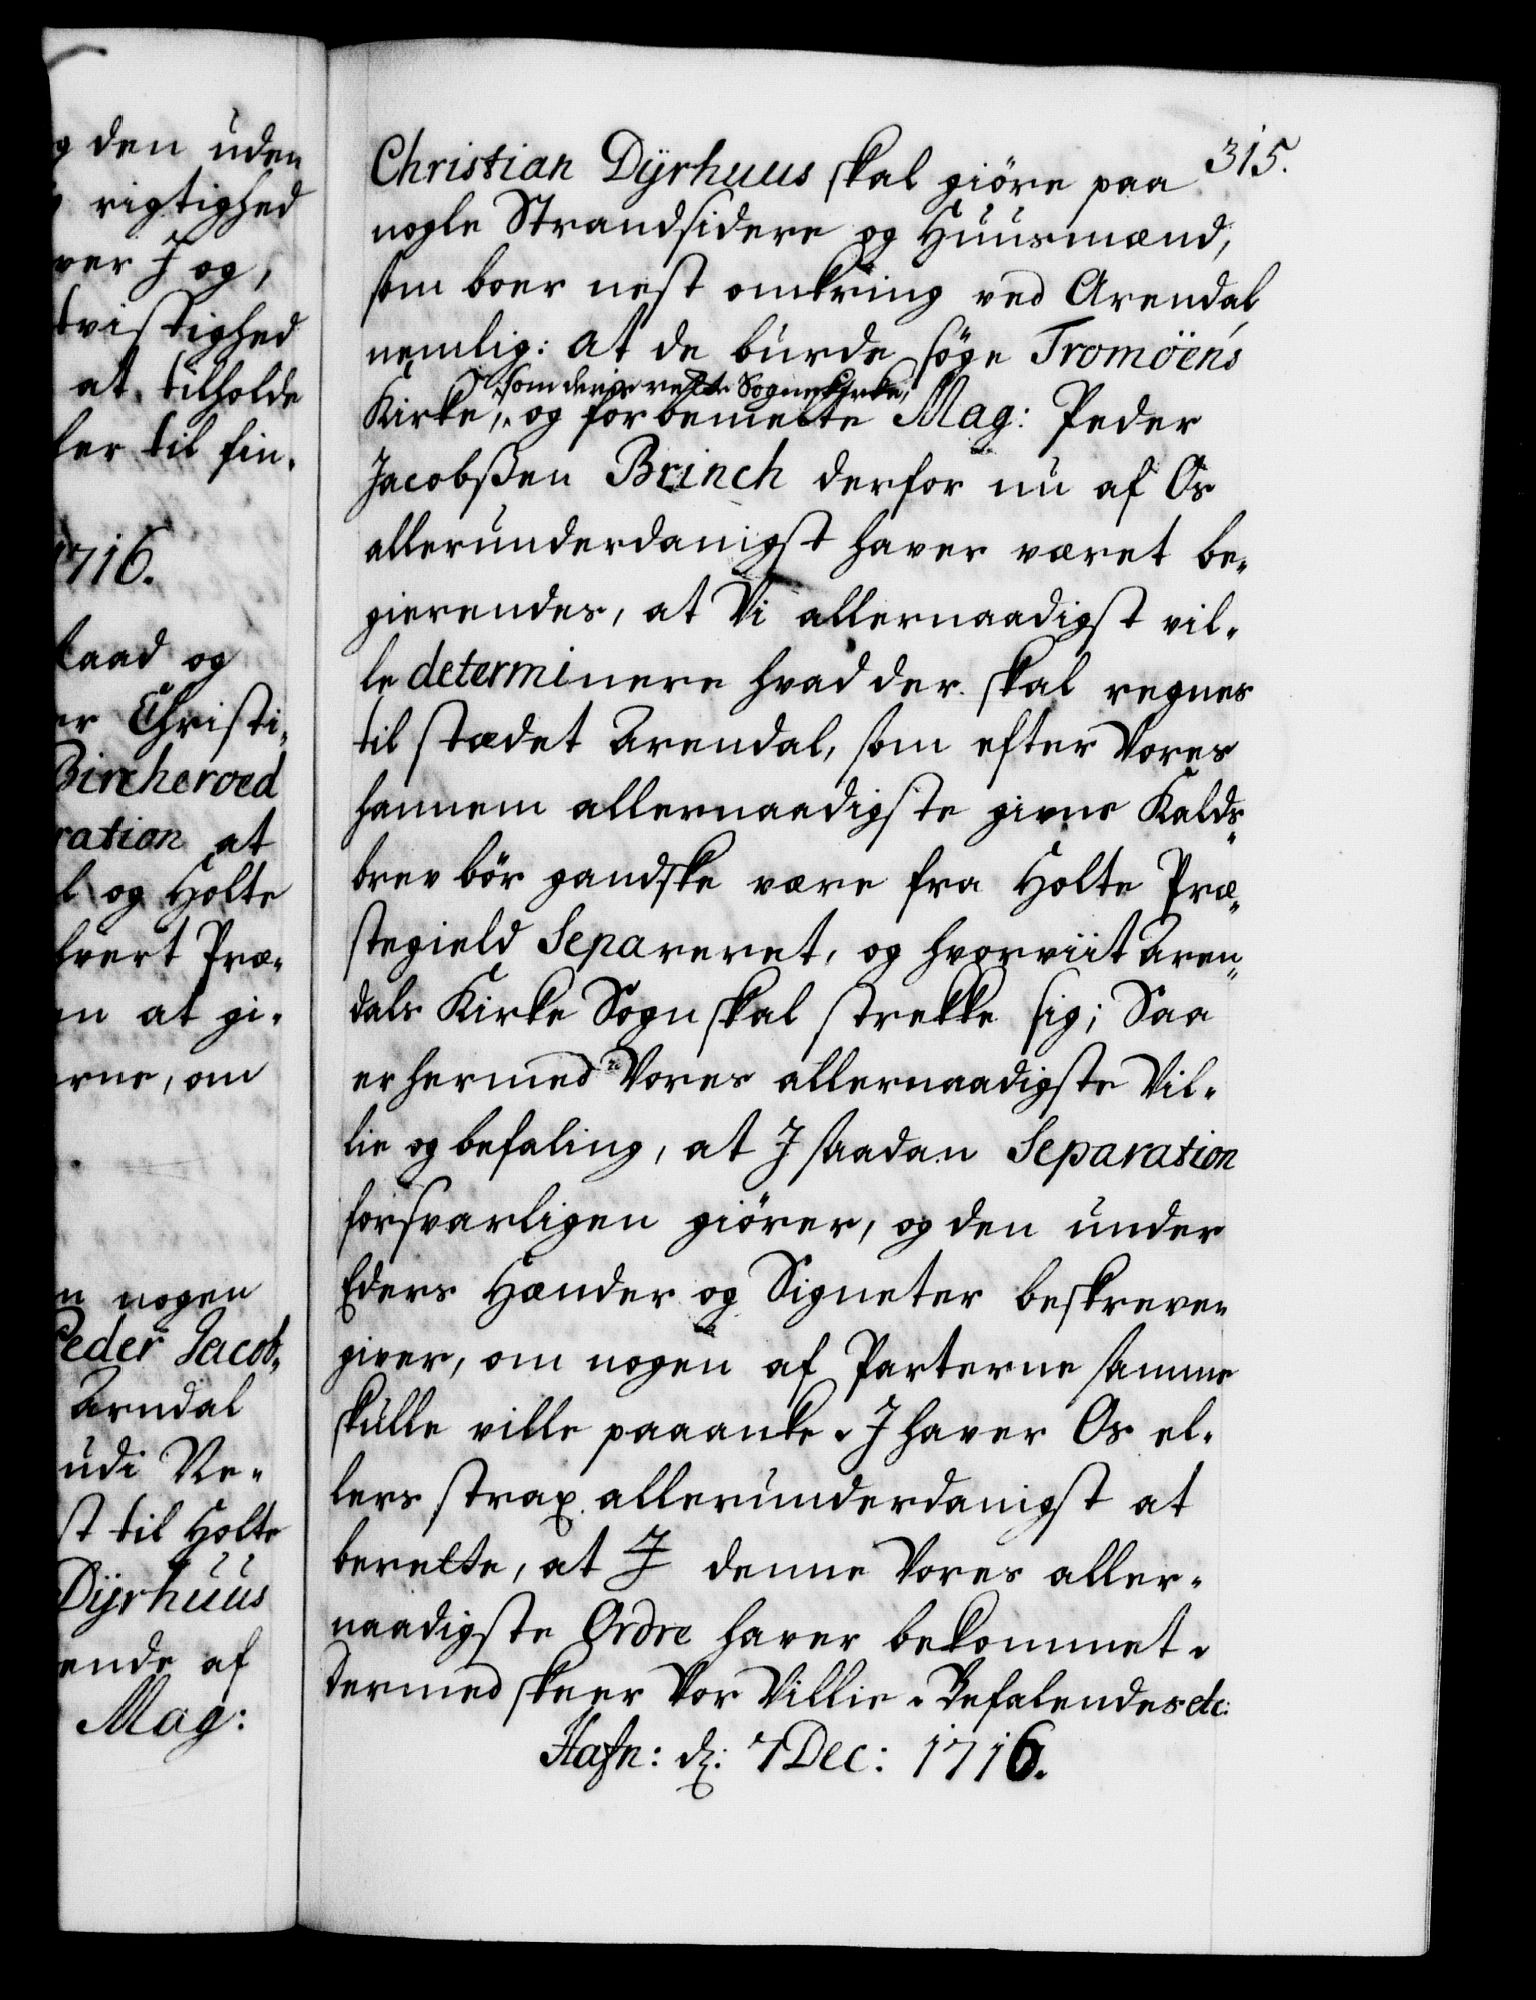 g den uden
rigtighed
ver J og,
tvistighed
at tilholde
ler til fin-
1716.
taad og
er Christi-
Bircheroed
ration at
l og Holte
hvert Præ-
en at gi-
erne, om
n nogen
Peder Jacob-
Arndal
udi Ne-
st til Holte
Dÿrhuus
ende af
Mag:
315.
Christian Dÿrhuus skal giöre paa
nogle Strandsidere og Huusmænd,
som boer nest omkring ved Arendal,
nemlig: at de burde söge Tromöens
som deris rette Sogne Kirke,
Kirke, og forbemelte Mag: Peder
Jacobßen Brinch derfor nu af Os
allerunderdanigst haver været be-
gierendes, at Vi allernaadigst vil-
le determinere hvad der skal regnes
til stædet Arendal, som efter Vores
hannem allernaadigste givne Kalds-
brev bör gandske være fra Holte Præ-
stegield Separeret, og hvorviit Aren-
dals Kirke Sogn skal strekke sig; Saa
er hermed Vores allernaadigste Vil-
lie og befaling, at J saadan Separation
forsvarligen giörer, og den under
Eders Hænder og Signeter beskreven
giver, om nogen af Parterne samme
skulle ville paaanke. J haver Os el-
lers strax allerunderdanigst at
berette, at J denne Vores aller-
naadigste Ordre haver bekommet.
dermed skeer Vor Villie. Befalendes etc:
Hafn: d: 7 Dec: 1716.